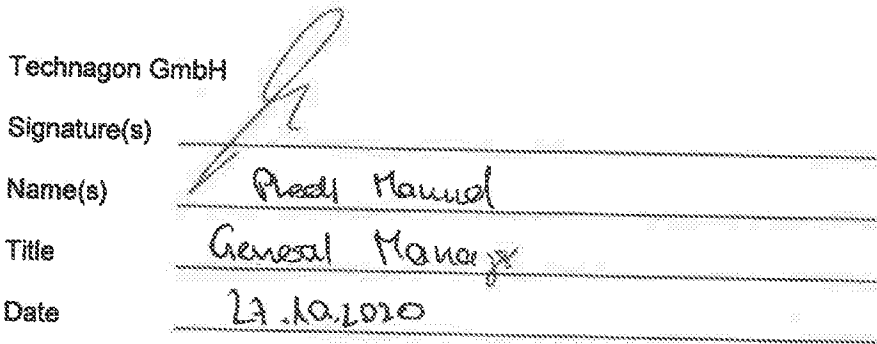 Technagon GmbH
Signature(s)
Name(s) Manuel
Title General Manager
Date 27.10.2020